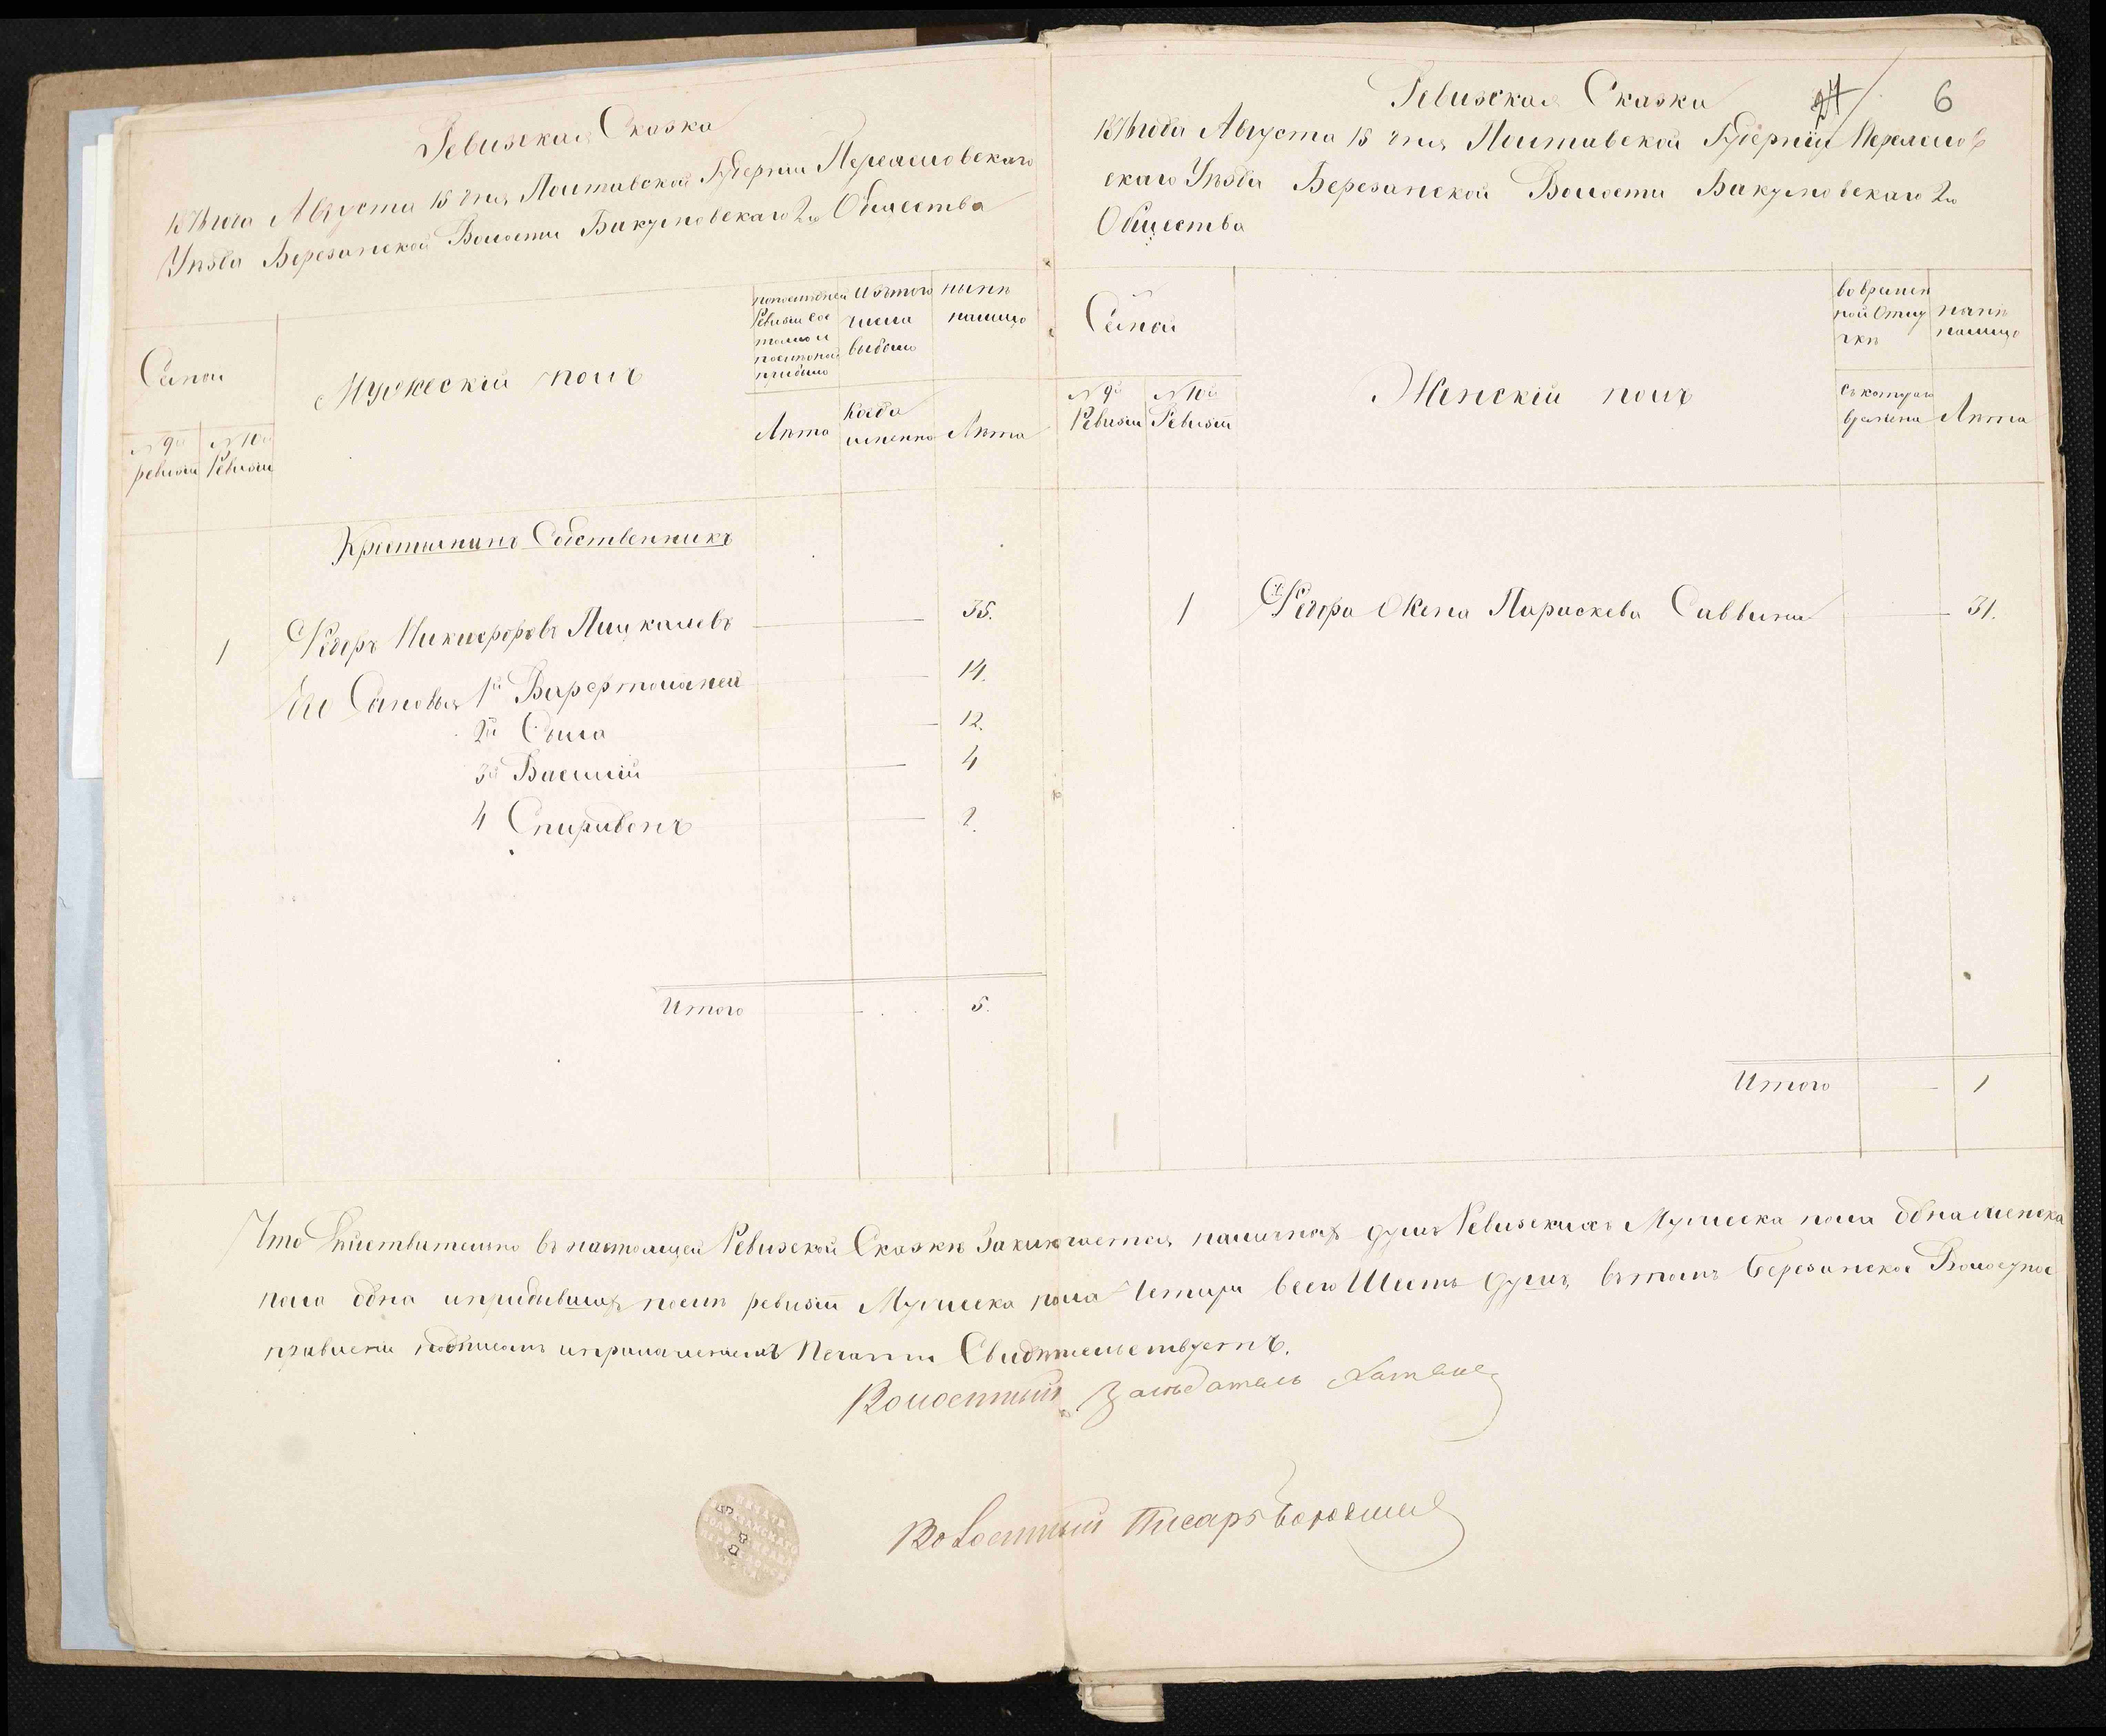 Ревизская Сказка
187 года Августа 15 дня Полтавской Губерніи Переяславскаго
Уѣзда Березанской Волости Бакумовскаго 2го Общества
Семьи
№ 9й ревизіи
№ 10й Ревизіи
Мужескій полъ
По послѣдней Ревизіи состояло и послѣ оной прибыло
Изъ того числа выбыло
нынѣ на лицо
Лѣта
Когда именно
Лѣта
Крестьянинъ Собственникъ
1 Федоръ Никифоровъ 35.
Его Сыновья 1й Варфоломей 14.
2й Сыла 12.
3й Василій 4
4 Спиридонъ 2.
Итого 5.
24 6
Ревизская Сказка
187 года Августа 15 дня Полтавской Губерніи Переяслов
скаго Уѣзда Березанской Волости Бакумовскаго 2го
Общества
Семьи
№ 9й Ревизіи
№ 10й Ревизіи
Женскій полъ
во времен
ной Отлу
чкѣ
нынѣ
налицо
съ котораго
времени
Лѣта
1 Федора Жена Параскева Саввина 31.
Итого 1
Что Дѣйствительно въ настоящей Ревизской Сказкѣ Заключается наличныхъ душъ Ревизскихъ Мужеска пола одна женска
пола одна и прибывшихъ послѣ ревизіи Мужеска пола Четыри всего Шесть душъ, въ томъ Березанское Волосное
правленіе подписомъ и приложеніемъ Печати Свидѣтельствуетъ.
Волостный
Волостный Писарь